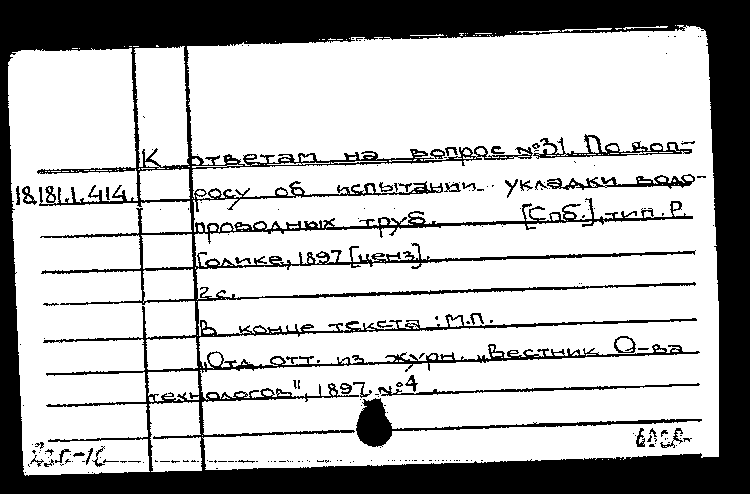 К ответам на вопрос №31. По воп-
18.181.1.414. росу об испытании укладки водо-
проводных труб. [Спб.], тип. Р.
Голике, 1897 [ценз].
2 с.
В конце текста: М.П.
"Отд. отт. из журн. „Вестник О-ва
технологов", 1897, №4.